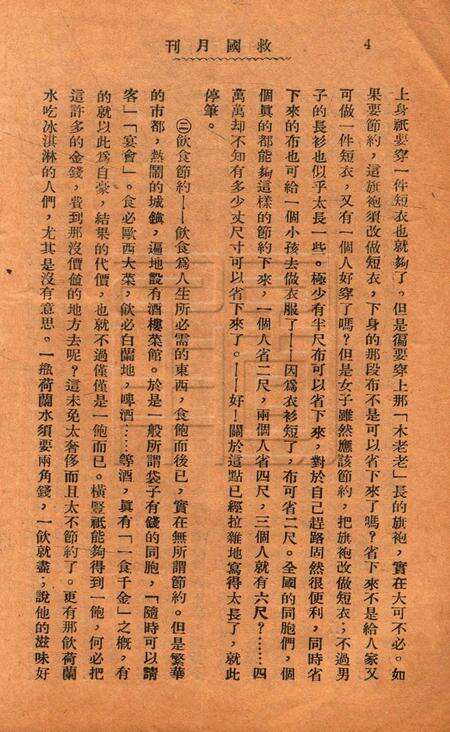 救國月刊
4
上身祇要穿一件短衣也就夠了。但是偏要穿上那「木老老」長的旗袍，實在大可不必。如
果要節約，這旗袍須改做短衣，下身的那段布不是可以省下來了嗎？省下來不是給人家又
可做一件短衣，又有一個人好穿了嗎？但是女子雖然應該節約，把旗袍改做短衣；不過男
子的長衫也似乎太長一些。極少有半尺布可以省下來，對於自己趕路固然很便利，同時省
下來的布也可給一個小孩去做衣服了——因爲衣衫短了，布可省二尺。全國的同胞們，個
個眞的都能夠這樣的節約下來，一個人省二尺，兩個人省四尺，三個人就有六尺？……四
萬萬却不知有多少丈尺寸可以省下來了。——好！關於這點已經拉雜地寫得太長了，就此
停筆。
㊁飲食節約——飲食爲人生所必需的東西，食飽而後已，實在無所謂節約。但是繁華
的市都，熱鬧的城鎮，遍地設有酒樓菜館。於是一般所謂袋子有錢的同胞，「隨時可以請
客」「宴會」。食必歐西大菜，飲必白蘭地，啤酒……等酒，眞有「一食千金」之槪，有
的就以此爲自豪，結果的代價，也就不過僅僅是一飽而已。橫豎祇能夠得到一飽，何必把
這許多的金錢，費到那沒價値的地方去呢？這未免太奢侈而且太不節約了。更有那飲荷蘭
水吃冰淇淋的人們，尤其是沒有意思。一瓶荷蘭水須要兩角錢，一飲就盡；說他的滋味好